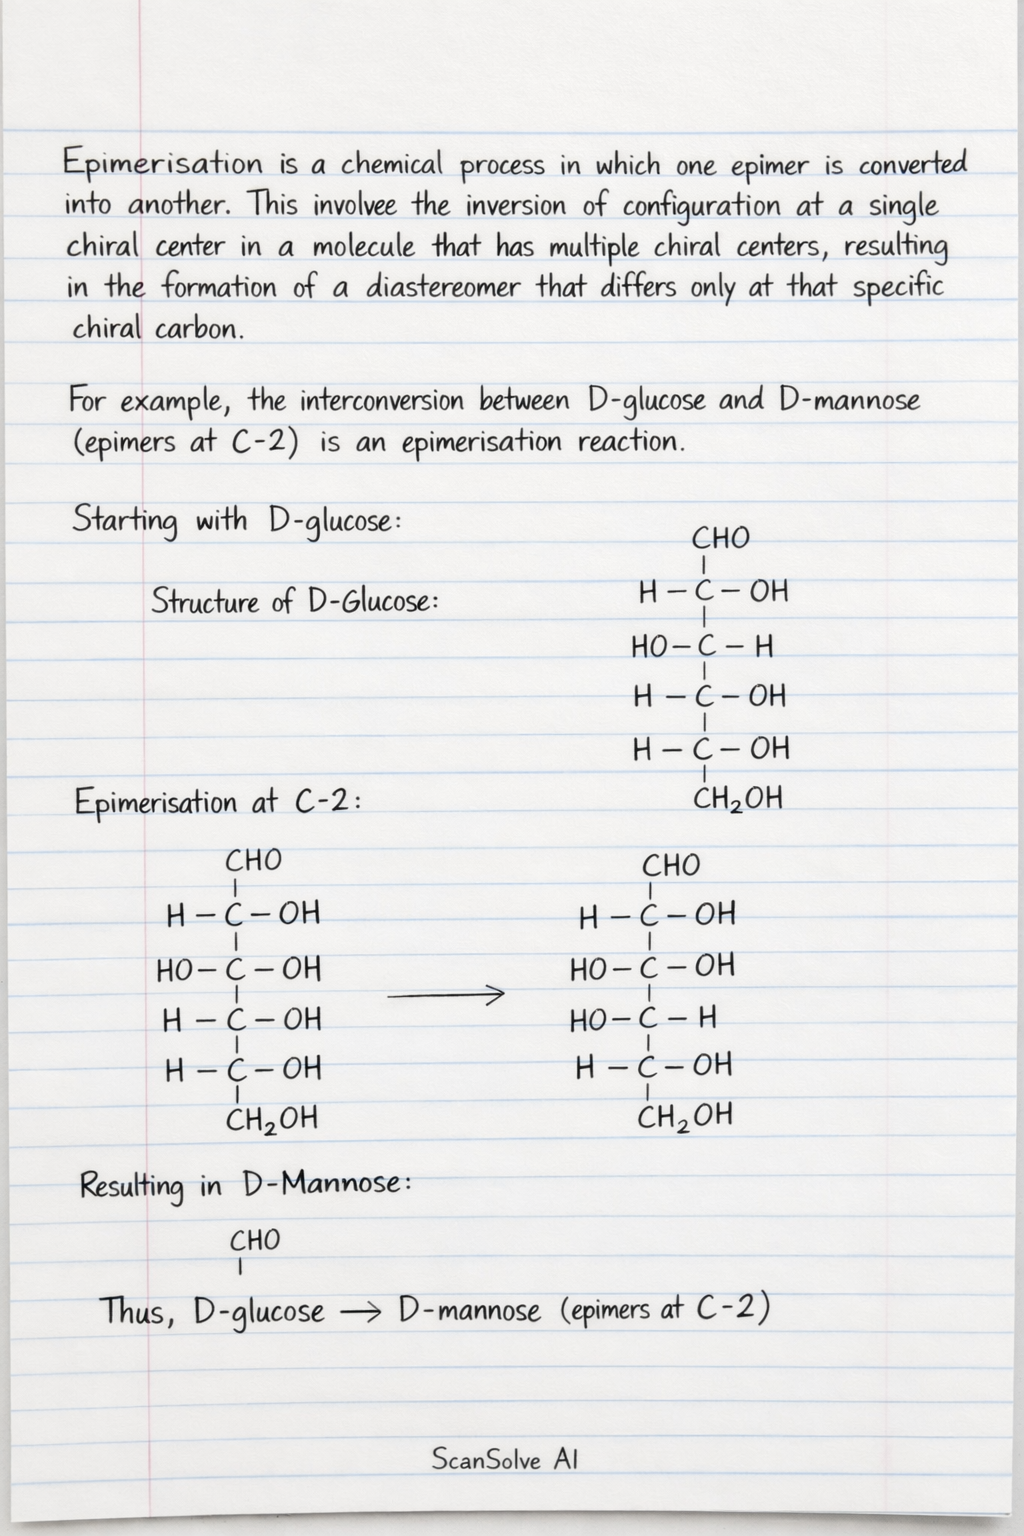 Epimerisation is a chemical process in which one epimer is converted
into another. This involvee the inversion of configuration at a single
chiral center in a molecule that has multiple chiral centers, resulting
in the formation of a diastereomer that differs only at that specific
chiral carbon.
For example, the interconversion between D-glucose and D-mannose
(epimers at C-2) is an epimerisation reaction.
Starting with D-glucose:
Structure of D-Glucose:
CHO
|
H – C – OH
|
HO – C – H
|
H – C – OH
|
H – C – OH
|
CH₂OH
Epimerisation at C-2:
CHO
|
H – C – OH
|
HO – C – OH
|
H – C – OH
|
H – C – OH
|
CH₂OH
→
CHO
|
H – C – OH
|
HO – C – OH
|
HO – C – H
|
H – C – OH
|
CH₂OH
Resulting in D-Mannose:
CHO
|
Thus, D-glucose → D-mannose (epimers at C-2)
ScanSolve AI